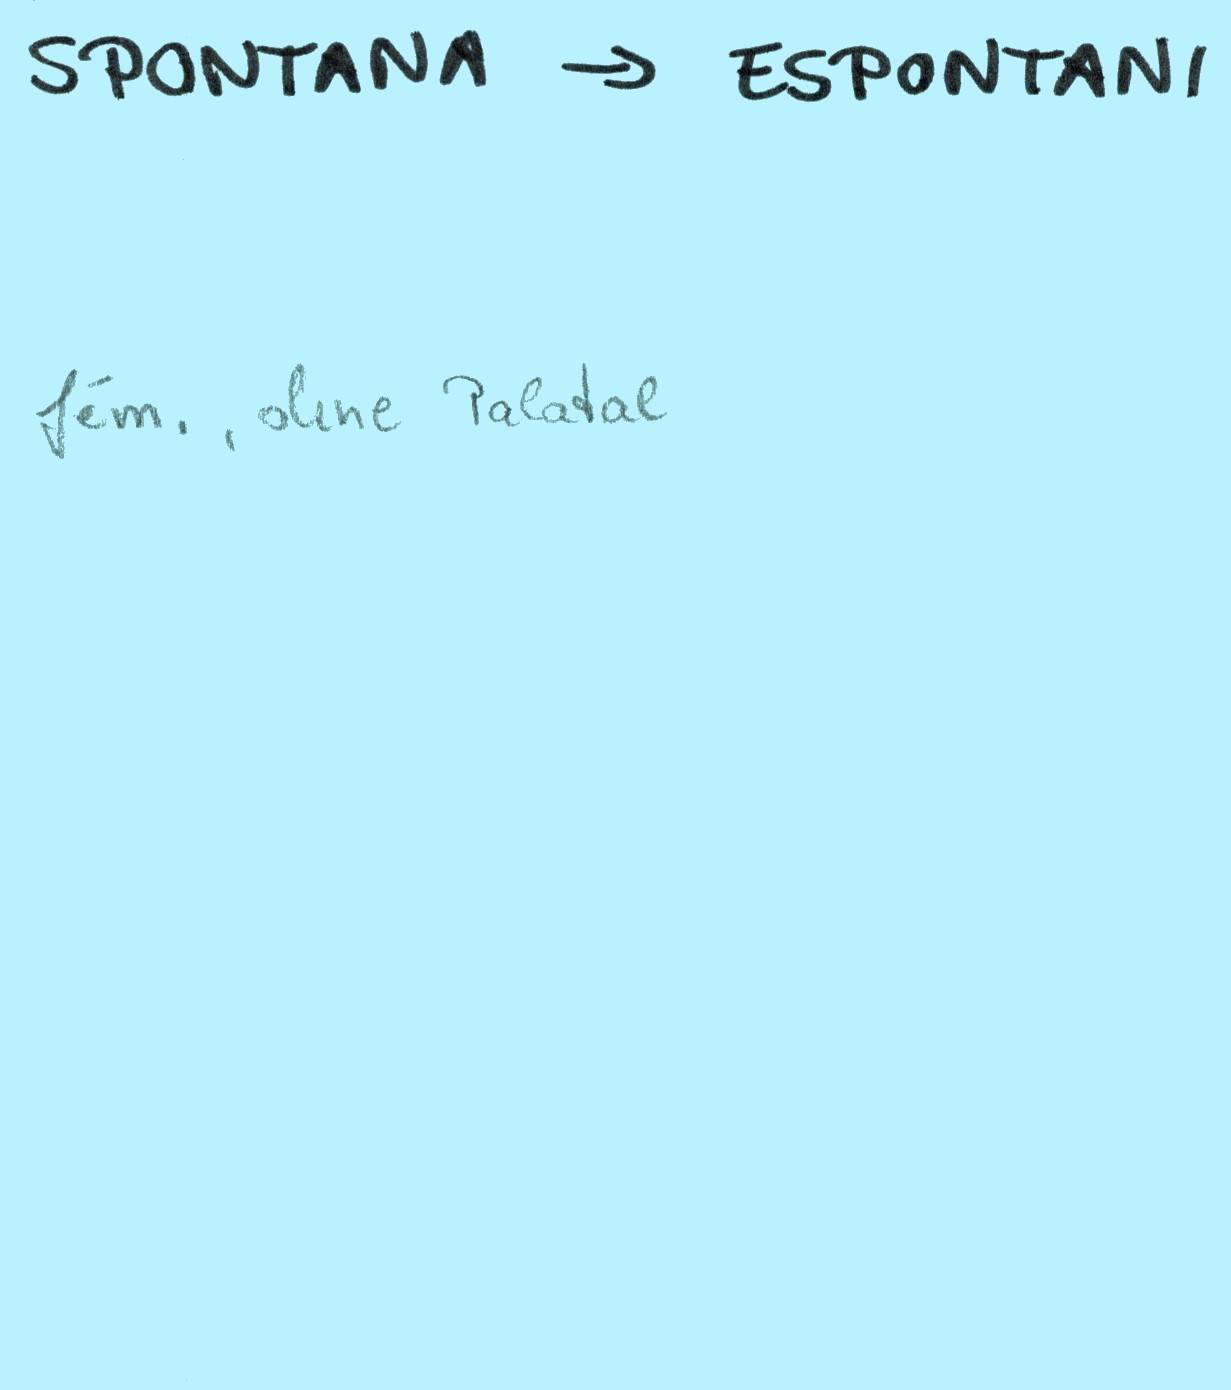 SPONTANA → ESPONTANI
fém., ohne Palatal